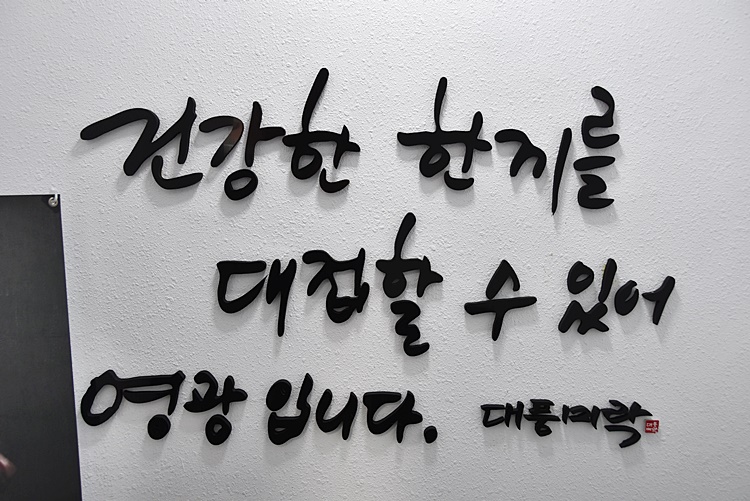 건강한 한끼를
대접할 수 있어
영광 입니다.
대풍미락